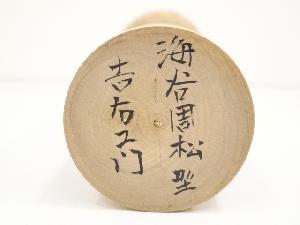 海谷周松型
吉右エ门